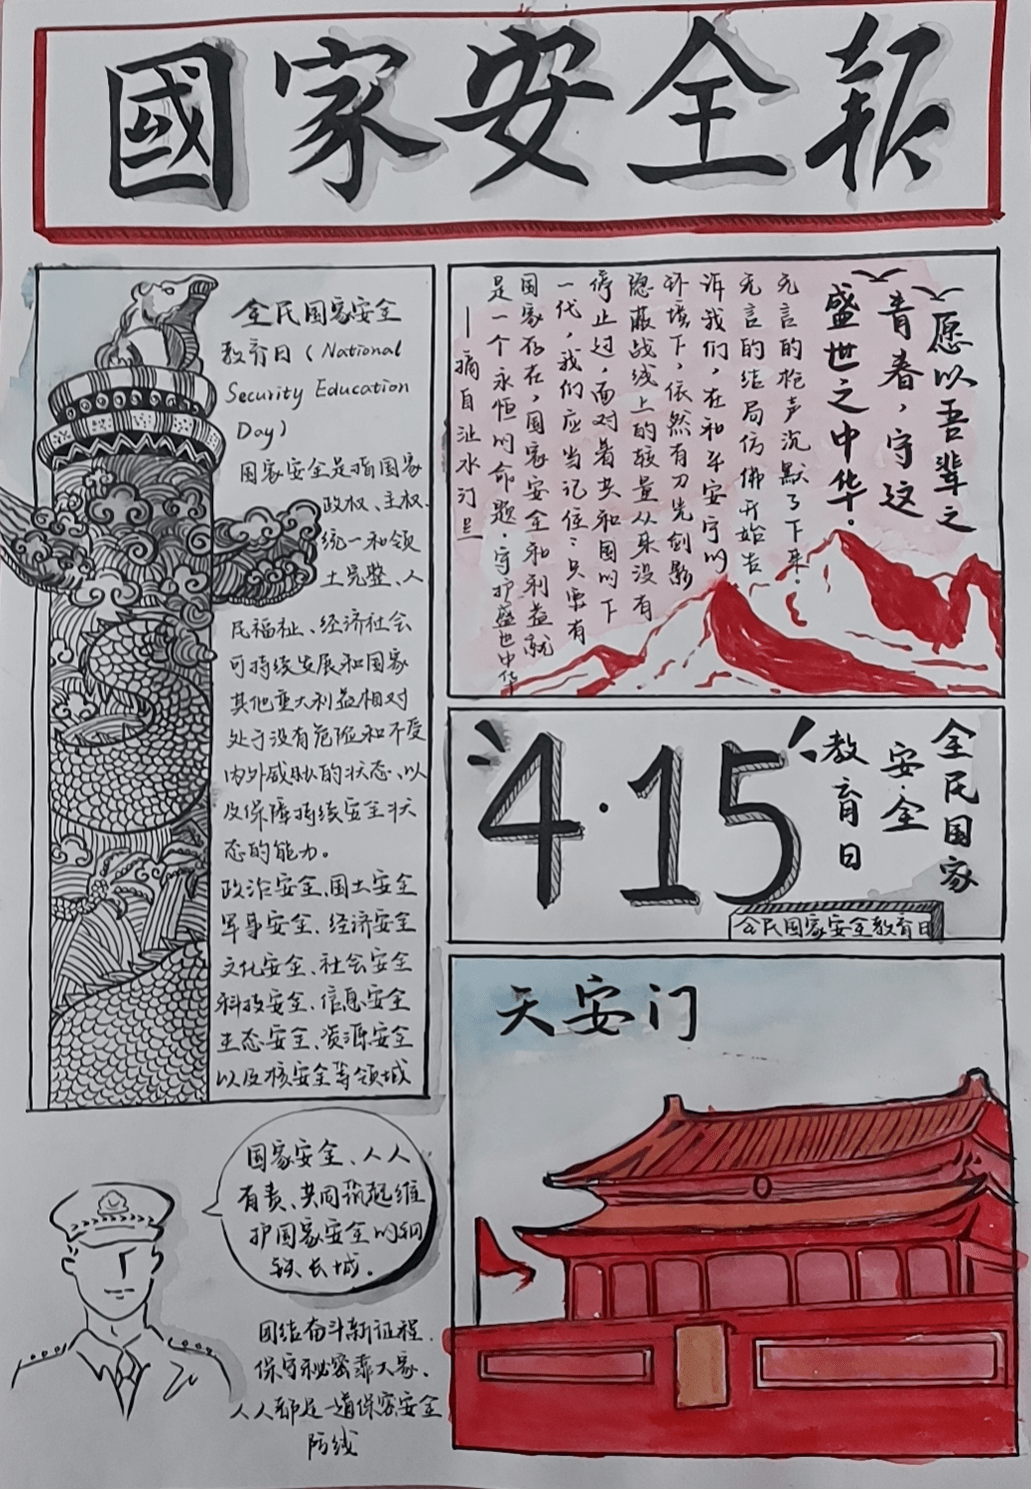 國家安全报
全民国家安全
教育日（National
Security Education
Day）
国家安全是指国家
政权、主权、
统一和领
土完整、人
民福祉、经济社会
可持续发展和国家
其他重大利益相对
处于没有危险和不受
内外威胁的状态、以
及保障持续安全状
态的能力。
政治安全、国土安全
军事安全、经济安全
文化安全、社会安全
科技安全、信息安全
生态安全、资源安全
以及核安全等领域
愿以吾辈之
青春，守这
盛世之中华。
无言的枪声沉默了下来
无言的结局仿佛开始告
诉我们，在和平安宁的
环境下，依然有刀光剑影
隐蔽战线上的较量从来没有
停止过，面对着共和国的下
一代，我们应当记住：只要有
国家存在，国家安全和利益就
是一个永恒的命题．守护盛世中华
—摘自沚水汀兰
4·15
全民国家
安全
教育日
全民国家安全教育日
天安门
国家安全、人人
有责、共同筑起维
护国家安全的钢
铁长城。
团结奋斗新征程．
保守秘密靠大家．
人人都是一道保密安全
防线